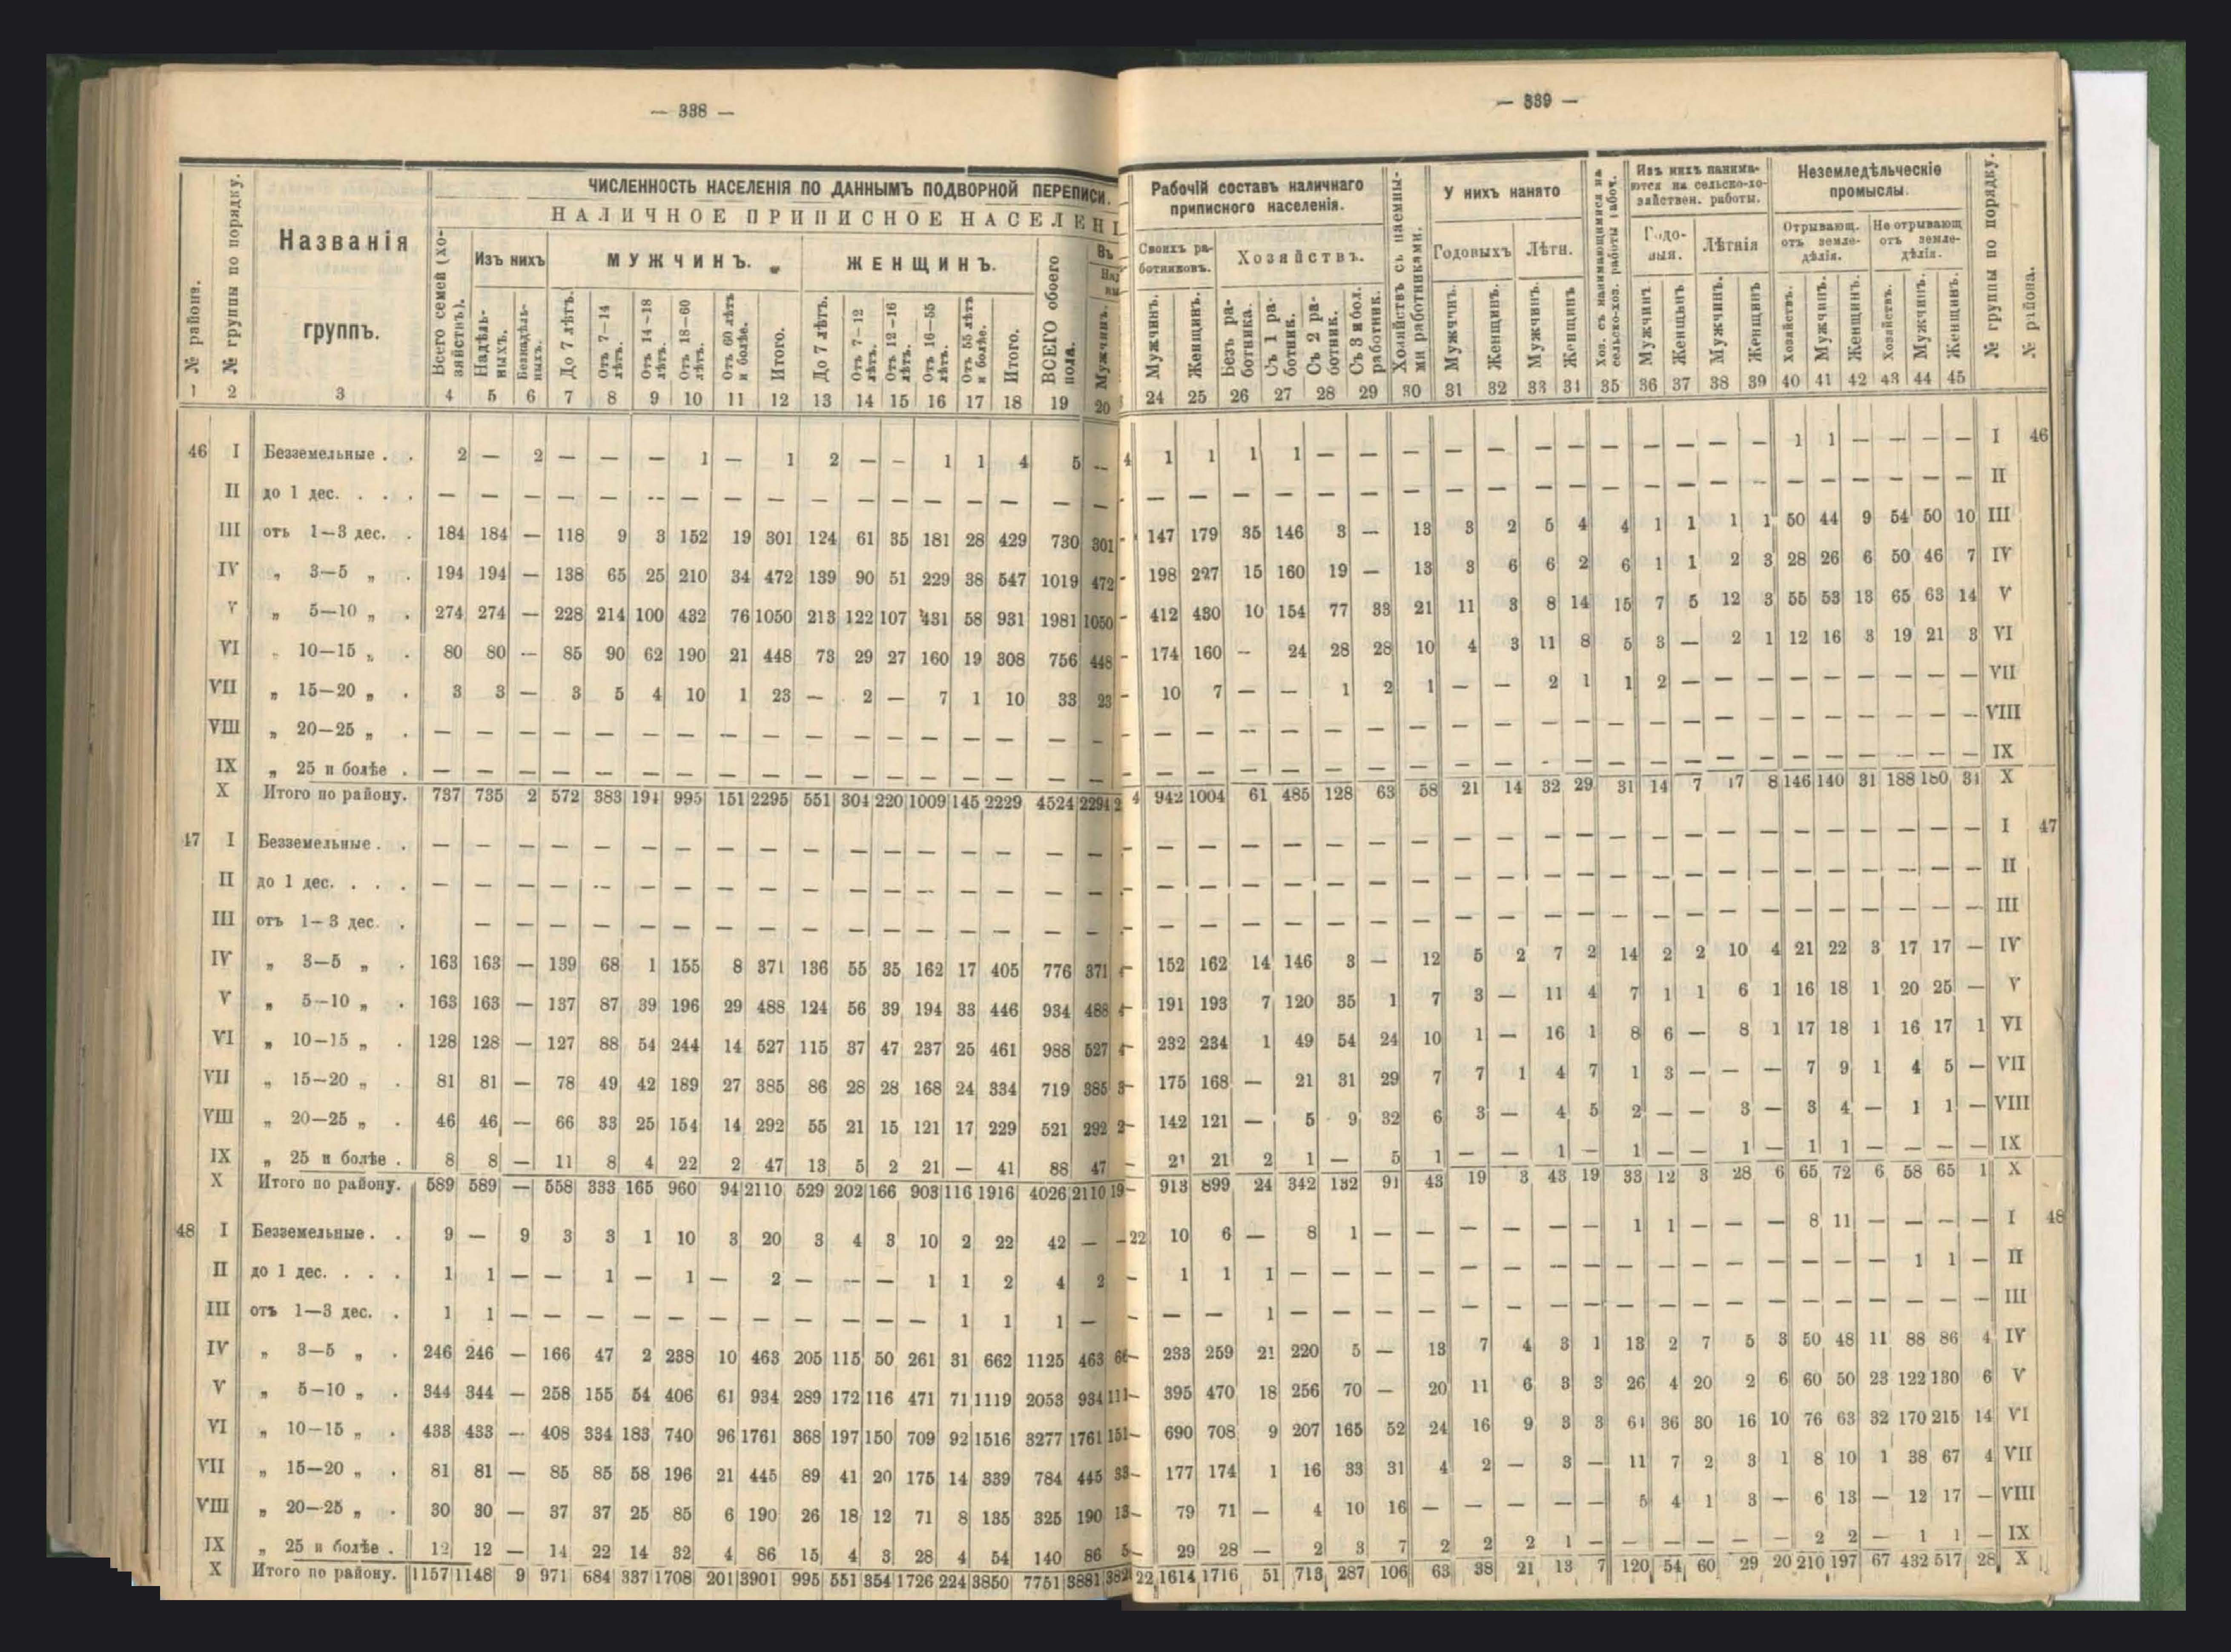 — 338 —
ЧИСЛЕННОСТЬ НАСЕЛЕНІЯ ПО ДАННЫМЪ ПОДВОРНОЙ ПЕРЕПИСИ.
НАЛИЧНОЕ ПРИПИСНОЕ НАСЕЛЕНІ
№ района.
№ группы по порядку.
Названія группъ.
Всего семей (хозяйствъ).
Изъ нихъ
Надѣльныхъ.
Безнадѣльныхъ.
МУЖЧИНЪ.
До 7 лѣтъ.
Отъ 7—14 лѣтъ.
Отъ 14—18 лѣтъ.
Отъ 18—60 лѣтъ.
Отъ 60 лѣтъ и болѣе.
Итого.
ЖЕНЩИНЪ.
До 7 лѣтъ.
Отъ 7—12 лѣтъ.
Отъ 12—16 лѣтъ.
Отъ 16—55 лѣтъ.
Отъ 55 лѣтъ и болѣе.
Итого.
ВСЕГО обоего пола.
Мужчинъ.
1 2 3 4 5 6 7 8 9 10 11 12 13 14 15 16 17 18 19 20
46 I Безземельные . . 2 — 2 — — — 1 — 1 2 — — 1 1 4 5 —
II до 1 дес. . . . — — — — — — — — — — — — — — — — —
III отъ 1—3 дес. . 184 184 — 118 9 3 152 19 301 124 61 35 181 28 429 730 301
IV „ 3—5 „ . 194 194 — 138 65 25 210 34 472 139 90 51 229 38 547 1019 472
V „ 5—10 „ . 274 274 — 228 214 100 432 76 1050 213 122 107 431 58 931 1981 1050
VI „ 10—15 „ . 80 80 — 85 90 62 190 21 448 73 29 27 160 19 308 756 448
VII „ 15—20 „ . 3 3 — 3 5 4 10 1 23 — 2 — 7 1 10 33 23
VIII „ 20—25 „ . — — — — — — — — — — — — — — — — —
IX „ 25 и болѣе . — — — — — — — — — — — — — — — — —
X Итого по району. 737 735 2 572 383 194 995 151 2295 551 304 220 1009 145 2229 4524 2294
47 I Безземельные . . — — — — — — — — — — — — — — — — —
II до 1 дес. . . . — — — — — — — — — — — — — — — — —
III отъ 1—3 дес. . — — — — — — — — — — — — — — — —
IV „ 3—5 „ . 163 163 — 139 68 1 155 8 371 136 55 35 162 17 405 776 371
V „ 5—10 „ . 163 163 — 137 87 39 196 29 488 124 56 39 194 33 446 934 488
VI „ 10—15 „ . 128 128 — 127 88 54 244 14 527 115 37 47 237 25 461 988 527
VII „ 15—20 „ . 81 81 — 78 49 42 189 27 385 86 28 28 168 24 334 719 385
VIII „ 20—25 „ . 46 46 — 66 33 25 154 14 292 55 21 15 121 17 229 521 292
IX „ 25 и болѣе . 8 8 — 11 8 4 22 2 47 13 5 2 21 — 41 88 47
X Итого по району. 589 589 — 558 333 165 960 94 2110 529 202 166 903 116 1916 4026 2110
48 I Безземельные . . 9 — 9 3 3 1 10 3 20 3 4 3 10 2 22 42 —
II до 1 дес. . . . 1 1 — — 1 — 1 — 2 — — — 1 1 2 4 2
III отъ 1—3 дес. . 1 1 — — — — — — — — — — — 1 1 1 —
IV „ 3—5 „ . 246 246 — 166 47 2 238 10 463 205 115 50 261 31 662 1125 463
V „ 5—10 „ . 344 344 — 258 155 54 406 61 934 289 172 116 471 71 1119 2053 934
VI „ 10—15 „ . 433 433 — 408 334 183 740 96 1761 368 197 150 709 92 1516 3277 1761
VII „ 15—20 „ . 81 81 — 85 85 58 196 21 445 89 41 20 175 14 339 784 445
VIII „ 20—25 „ . 30 30 — 37 37 25 85 6 190 26 18 12 71 8 135 325 190
IX „ 25 и болѣе . 12 12 — 14 22 14 32 4 86 15 4 3 28 4 54 140 86
X Итого по району. 1157 1148 9 971 684 337 1708 201 3901 995 551 354 1726 224 3850 7751 3881
— 339 —
Рабочій составъ наличнаго приписного населенія.
Своихъ работниковъ.
Мужчинъ.
Женщинъ.
Хозяйствъ.
Безъ работника.
Съ 1 работник.
Съ 2 работник.
Съ 3 и бол. работник.
Хозяйствъ съ наемными работниками.
У нихъ нанято
Годовыхъ
Мужчинъ.
Женщинъ.
Лѣтн.
Мужчинъ.
Женщинъ
Хоз. съ нанимающимися на сельско-хоз. работы рабоч.
Изъ нихъ нанимаются на сельско-хозяйствен. работы.
Годовыя.
Мужчинъ
Женщинъ
Лѣтнія
Мужчинъ.
Женщинъ
Неземледѣльческіе промыслы.
Отрывающ. отъ земледѣлія.
Хозяйствъ.
Мужчинъ.
Женщинъ.
Не отрывающ отъ земледѣлія.
Хозяйствъ.
Мужчинъ.
Женщинъ.
№ группы по порядку.
№ района.
24 25 26 27 28 29 30 31 32 33 34 35 36 37 38 39 40 41 42 43 44 45
4 1 1 1 1 — — — — — — — — — — — — 1 1 — — — — I 46
— — — — — — — — — — — — — — — — — — — — — — II
147 179 35 146 3 — 13 3 2 5 4 4 1 1 1 1 50 44 9 54 50 10 III
198 227 15 160 19 — 13 3 6 6 2 6 1 1 2 3 28 26 6 50 46 7 IV
412 430 10 154 77 33 21 11 3 8 14 15 7 5 12 3 55 53 13 65 63 14 V
174 160 — 24 28 28 10 4 3 11 8 5 3 — 2 1 12 16 3 19 21 3 VI
10 7 — — 1 2 1 — — 2 1 1 2 — — — — — — — — — VII
— — — — — — — — — — — — — — — — — — — — — — VIII
— — — — — — — — — — — — — — — — — — — — — — IX
2 4 942 1004 61 485 128 63 58 21 14 32 29 31 14 7 17 8 146 140 31 188 180 34 X
— — — — — — — — — — — — — — — — — — — — — — I 47
— — — — — — — — — — — — — — — — — — — — — — II
— — — — — — — — — — — — — — — — — — — — — — III
152 162 14 146 3 — 12 5 2 7 2 14 2 2 10 4 21 22 3 17 17 — IV
191 193 7 120 35 1 7 3 — 11 4 7 1 1 6 1 16 18 1 20 25 — V
232 234 1 49 54 24 10 1 — 16 1 8 6 — 8 1 17 18 1 16 17 1 VI
3 — 175 168 — 21 31 29 7 7 1 4 7 1 3 — — — 7 9 1 4 5 — VII
2 — 142 121 — 5 9 32 6 3 — 4 5 2 — — 3 — 3 4 — 1 1 — VIII
— 21 21 2 1 — 5 1 — — 1 — 1 — — 1 — 1 1 — — — — IX
19 — 913 899 24 342 132 91 43 19 3 43 19 33 12 3 28 6 65 72 6 58 65 1 X
— 22 10 6 — 8 1 — — — — — — 1 1 — — — 8 11 — — — — I 48
— 1 1 1 — — — — — — — — — — — — — — — — — 1 1 — II
— — — 1 — — — — — — — — — — — — — — — — — — — III
66 — 233 259 21 220 5 — 13 7 4 3 1 13 2 7 5 3 50 48 11 88 86 4 IV
111 — 395 470 18 256 70 — 20 11 6 3 3 26 4 20 2 6 60 50 23 122 130 6 V
151 — 690 708 9 207 165 52 24 16 9 3 3 61 36 30 16 10 76 63 32 170 215 14 VI
33 — 177 174 1 16 33 31 4 2 — 3 — 11 7 2 3 1 8 10 1 38 67 4 VII
13 — 79 71 — 4 10 16 — — — — — 5 4 1 3 — 6 13 — 12 17 — VIII
5 — 29 28 — 2 3 7 2 2 2 1 — — — — — — 2 2 — 1 1 — IX
382 22 1614 1716 51 713 287 106 63 38 21 13 7 120 54 60 29 20 210 197 67 432 517 28 X